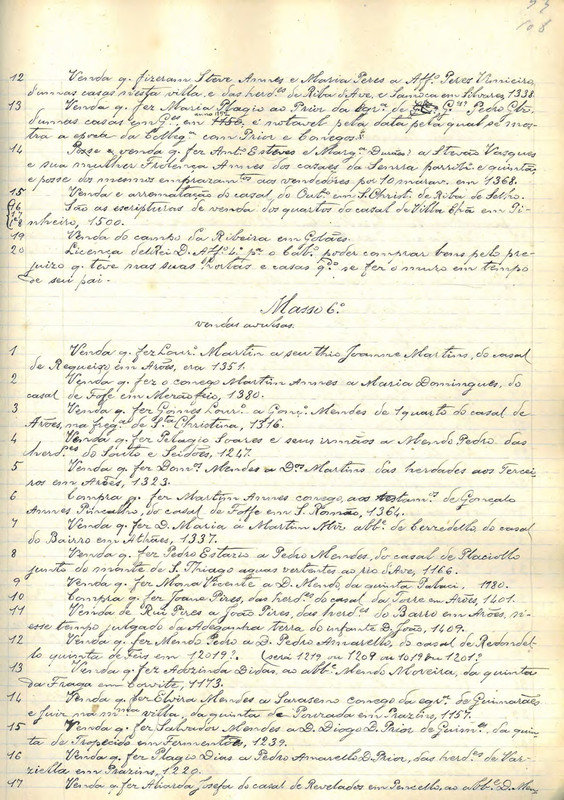 108
12 Venda q. fizeram Steve Annes e Maria Peres a Aff.º Peres Vimieiro
dumas casas nesta villa, e das herd.es de Riba d'Ave, e Lamoca em Silvares, 1338.
13 Venda q. fez Maria Plagio ao Prior da egr.ª de Pedro
dumas casas em G.es em 1156, é notavel pela data pela qual se mos-
tra a epoca da Colleg.ª com Prior e Conegos.
14 Posse e venda q. fez Ant.º Esteves e Marg.ª a Stevão Vasques
e sua mulher Florença Annes dos casaes da Senrra e quinta,
e posse dos mesmos emprazam.tos aos vendedores por 10 marav. em 1368.
15 Venda e arrematação do casal do Out.º em S. Christ. de Riba de Selho.
16
17
18 São as escripturas de venda dos quartos do casal de Villa Chã em Pi-
nheiro, 1500.
19 Venda do campo da Ribeira em Golães.
20 Licença delRei D. Aff.º 4.º p.ª o Cab.º poder comprar bens pelo pre-
juizo q. teve nas suas hortas e casas q.do se fez o muro em tempo
de seu pai.
Masso 6.º
vendas avulsas.
1 Venda q. fez Lour.º Martin a seu thio Joanne Martins, do casal
de Requeixo em Arões, era 1351.
2 Venda q. fez o conego Martim Annes a Maria Domingues, do
casal de Fofe em Mezãofrio, 1380.
3 Venda q. fez Gomes Lour.º a Gonç.º Mendes de 1 quarto do casal de
Arões, na freg.ª de S.ta Christina, 1316.
4 Venda q. fez Pelagio Soares e seus irmãos a Mendo Pedro das
herd.es do Souto e Seidões, 1247.
5 Venda q. fez Dom.os Mendes a D.os Martins das herdades aos Tercei-
ros em Arões, 1323.
6 Compra q. fez Martim Annes conego, aos testam.os de Gonçalo
Annes Pincalho, do casal de Fofe em S. Romão, 1364.
7 Venda q. fez D. Maria a Martim abb.e de Cerzedello, do casal
do Bairro em Athães, 1337.
8 Venda q. fez Pedro Estazio a Pedro Mendes, do casal de Placiollo
junto do monte de S. Thiago aguas vertentes ao rio d'Ave, 1166.
9 Venda q. fez Maria Vicente a D. Mendo, da quinta Pabaci, 1180.
10 Compra q. fez Joane Pires, das herd.es do casal da Torre em Arões, 1401.
11 Venda de Rui Pires a João Pires, das herd.es do Barro em Arões, n'-
esse tempo julgado da Adeganha terra do infante D. João, 1409.
12 Venda q. fez Mendo Pedro a D. Pedro Amarello, do casal de Redondel-
lo quinta de Feis em 12019? (será 1219 ou 1209 ou 1019 ou 1201?
13 Venda q. fez Adozinda Didaz, ao abb.e Mendo Moreira, da quinta
da Fraga em 1173.
14 Venda q. fez Elvira Mendes a Saraseno conego da egr.ª de Guimarães
e juiz na m.ma villa, da quinta de Pourada em Prazins, 1157.
15 Venda q. fez Salvador Mendes a D. Diogo D. Prior de Guim.es, da quin-
ta de em Fermentões, 1239.
16 Venda q. fez Plagio Dias a Pedro Amarello D. Prior, das herd.es de Var-
ziella em Prazins, 1220.
17 Venda q. fez Abiorda Josefa do casal de Revelados em Pencello, ao abb.e D. Men-